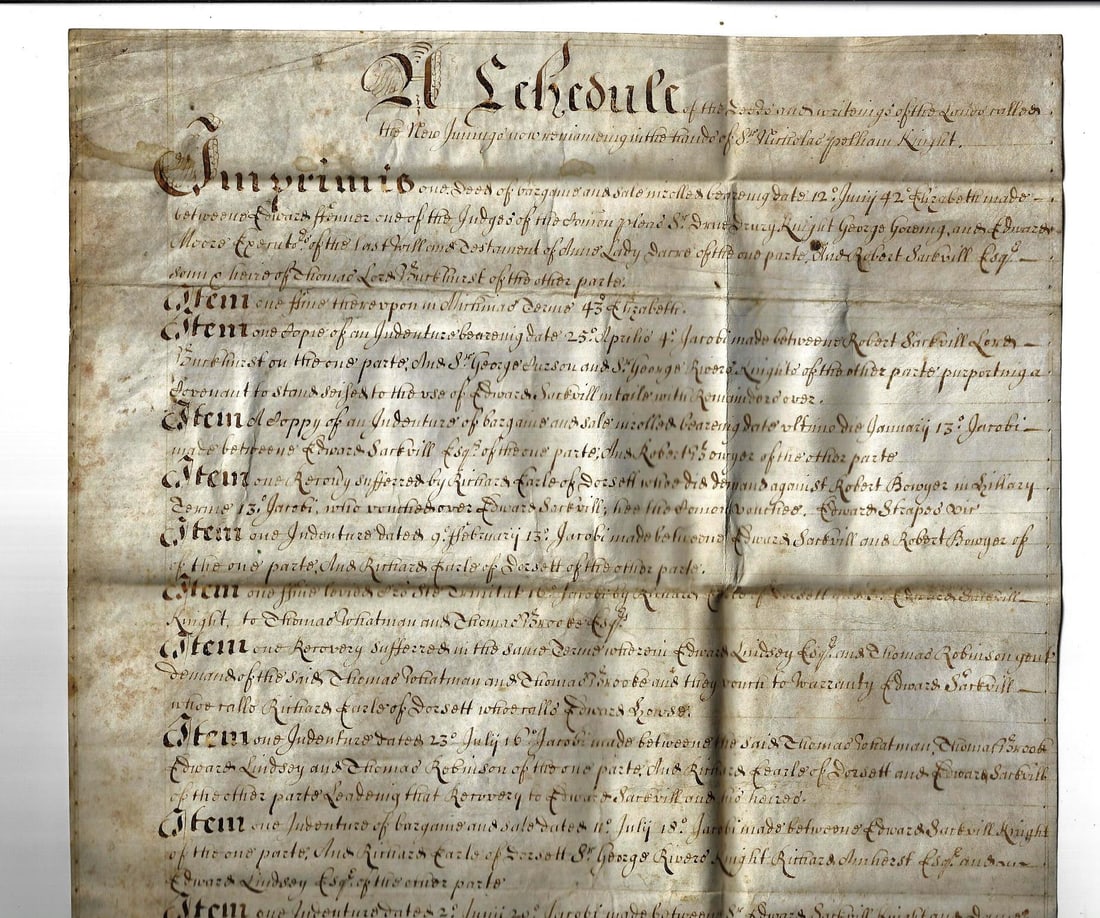 A Schedule of the Deeds and writeings of the Lands called
the New Innings now remaineing in the hands of Sr. Nicholas Pelham Knight.
Imprimis one Deed of bargaine and sale inrolled beareing date 12o. Junij 42o. Elizabeth made
betweene Edward ffenner one of the Judges of the Comon pleas Sr. Drue Drury Knight George Goreing, and Edward
Moore Executors. of the last Will and Testament of Anne Lady Dacre of the one parte, And Robert Sackvill Esqr.
sonn & heire of Thomas Lord Buckhurst of the other parte.
Item one ffine thereupon in Michmas Terme 43o. Elizabeth.
Item one Copie of an Indenture beareing date 25o. Aprilis 4o. Jacobi made betweene Robert Sackvill Lord
Buckhurst on the one parte, And Sr. George Curson and Sr. George Rivers Knights of the other parte, purporting a
Covenant to stand seised to the use of Edward Sackvill in taile with Remainders over.
Item A Coppy of an Indenture of bargaine and sale inrolled beareing date ultimo die January 13o. Jacobi
made betweene Edward Sackvill Esqr. of the one parte, And Robert Bowyer of the other parte
Item one Recovry sufferred by Richard Earle of Dorsett whoe did demand against Robert Bowyer in Hillary
Terme 13o. Jacobi, who vouched over Edward Sackvill, hee the Comon vouchee, Edward Strapes
Item one Indenture dated 9o. ffebruary 13o. Jacobi made betweene Edward Sackvill and Robert Bowyer of
of the one parte, And Richard Earle of Dorsett of the other parte.
Item one ffine levied Trinitat 16o. Jacobi by Richard Earle of Dorsett and Edward Sackvill
Knight, to Thomas Whatman and Thomas Brooke Esqrs.
Item one Recovery sufferred in the same Terme wherein Edward Lindsey Esqr. and Thomas Robinson gent
demand of the said Thomas Whatman and Thomas Brooke and they vouch to Warranty Edward Sackvill
whoe calls Richard Earle of Dorsett whoe calls Edward Howse.
Item one Indenture dated 23o. July 16o. Jacobi made betweene the said Thomas Whatman, Thomas Brook
Edward Lindsey and Thomas Robinson of the one parte, And Richard Earle of Dorsett and Edward Sackvill
of the other parte Leadeing that Recovery to Edward Sackvill and his heires.
Item one Indenture of bargaine and sale dated July 18o. Jacobi made betweene Edward Sackvill Knight
of the one parte, And Richard Earle of Dorsett Sr. George Rivers Knight Richard Amherst Esqr. and
Edward Lindsey Esqr. of the other parte
Item one Indenture dated 2o. Junij 20o. Jacobi made betweene Sr. Edward Sackvill Knight